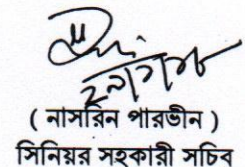 ( নাসরিন পারভীন )
সিনিয়র সহকারী সচিব